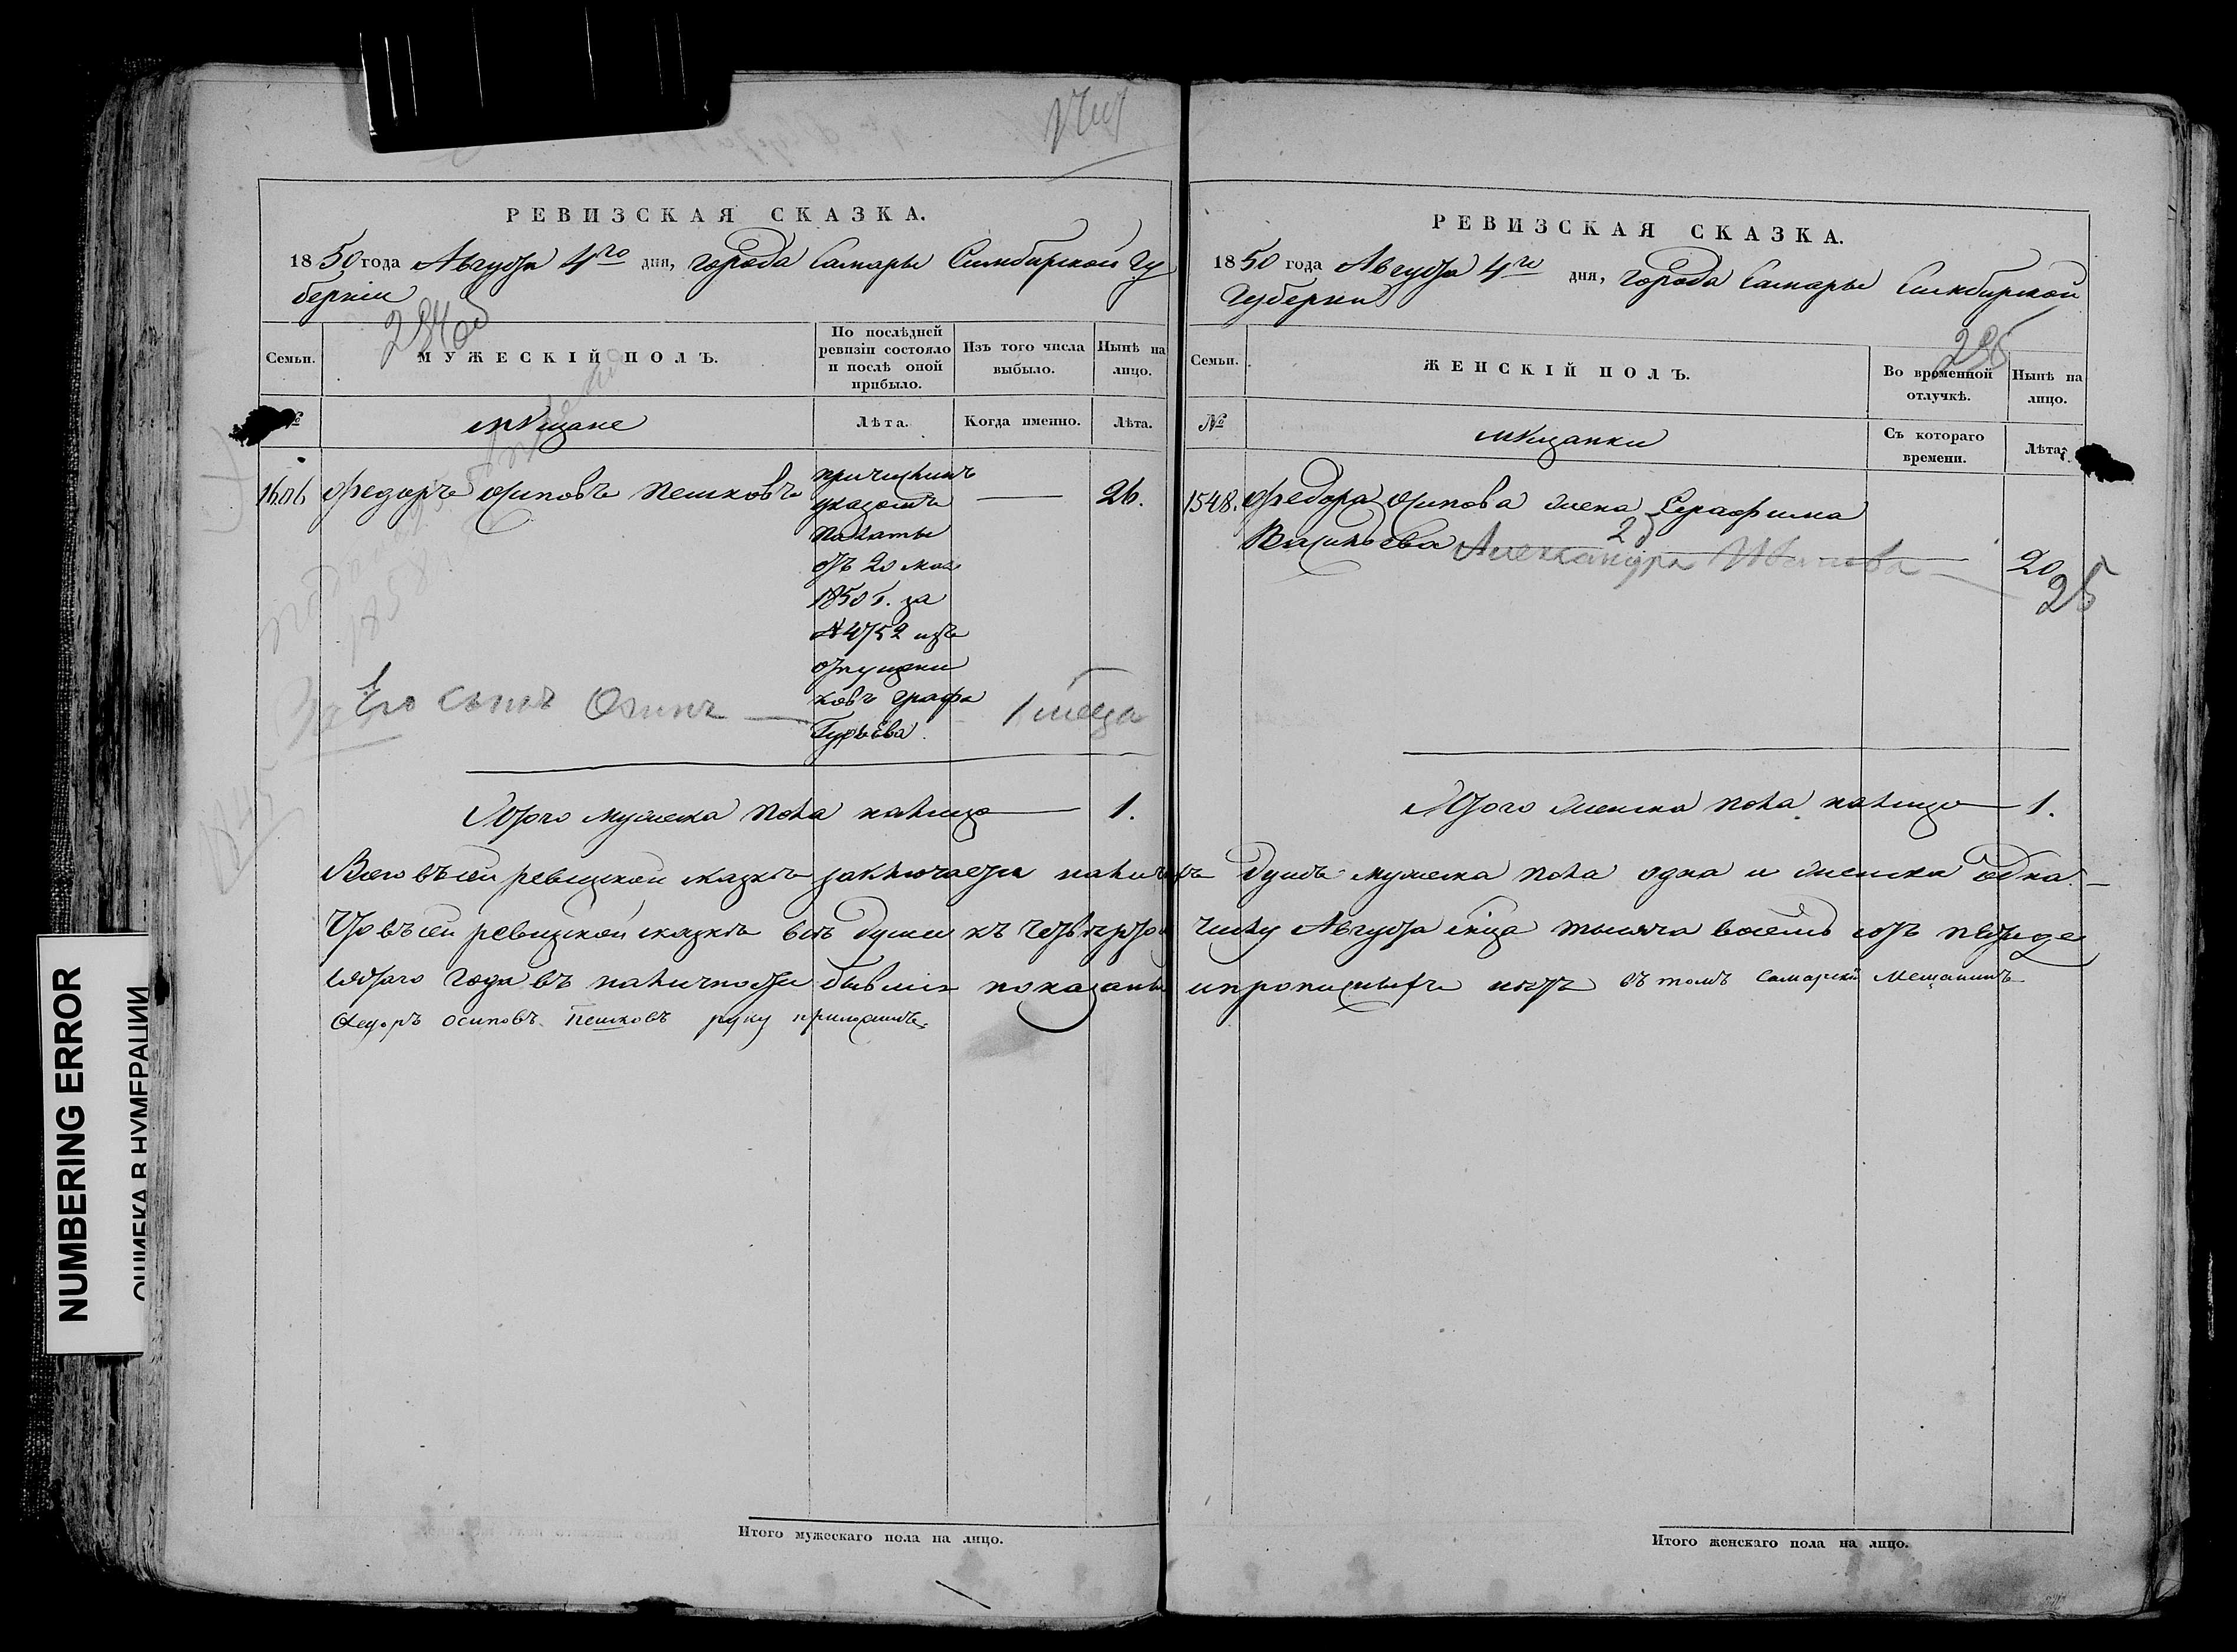 РЕВИЗСКАЯ СКАЗКА.
1850 года Августа 4го дня, города Самары Симбирской Гу
берніи
294об
Семьи.
МУЖЕСКІЙ ПОЛЪ.
По послѣдней ревизіи состояло и послѣ оной прибыло.
Изъ того числа выбыло.
Нынѣ на лицо.
№
мѣщане
Лѣта.
Когда именно.
Лѣта.
1606
Федоръ Осиповъ Пешковъ
причисленъ
указомъ
Палаты
отъ 20 мая
1850 г. за
№ 4752 изъ
отпущени
ковъ графа
Гурьева.
26.
Его сынъ Осипъ — 1 меца
Итого мужеска пола налицо — 1.
РЕВИЗСКАЯ СКАЗКА.
1850 года Августа 4го дня, города Самары Симбирской
Губерніи
295
Семьи.
ЖЕНСКІЙ ПОЛЪ.
Во временной отлучкѣ.
Нынѣ на лицо.
№
мѣщанки
Съ котораго времени.
Лѣта.
1548.
Федора Осипова жена Серафима
Васильева Александра Иванова
2
20
25
Итого женска пола налицо — 1.
Всего въ сей ревизской сказкѣ заключается налицо душъ мужеска пола одна и женска одна.—
Что въ сей ревизской сказкѣ всѣ души къ четвертому числу Августа мца тысяча восемь сотъ пятиде
сятаго года въ наличности бывшіе показаны и прописныхъ нѣтъ въ томъ Самарскій Мещанинъ
Федоръ Осиповъ Пешковъ руку приложилъ.
Итого мужескаго пола на лицо.
Итого женскаго пола на лицо.
NUMBERING ERROR
ОШИБКА В НУМЕРАЦИИ